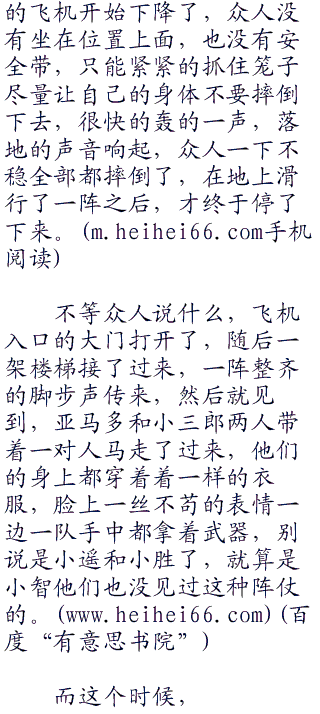 的飞机开始下降了，众人没
有坐在位置上面，也没有安
全带，只能紧紧的抓住笼子
尽量让自己的身体不要摔倒
下去，很快的轰的一声，落
地的声音响起，众人一下不
稳全部都摔倒了，在地上滑
行了一阵之后，才终于停了
下来。(m.heihei66.com手机
阅读)
不等众人说什么，飞机
入口的大门打开了，随后一
架楼梯接了过来，一阵整齐
的脚步声传来，然后就见
到，亚马多和小三郎两人带
着一对人马走了过来，他们
的身上都穿着着一样的衣
服，脸上一丝不苟的表情一
边一队手中都拿着武器，别
说是小遥和小胜了，就算是
小智他们也没见过这种阵仗
的。(www.heihei66.com)(百
度“有意思书院”)
而这个时候，